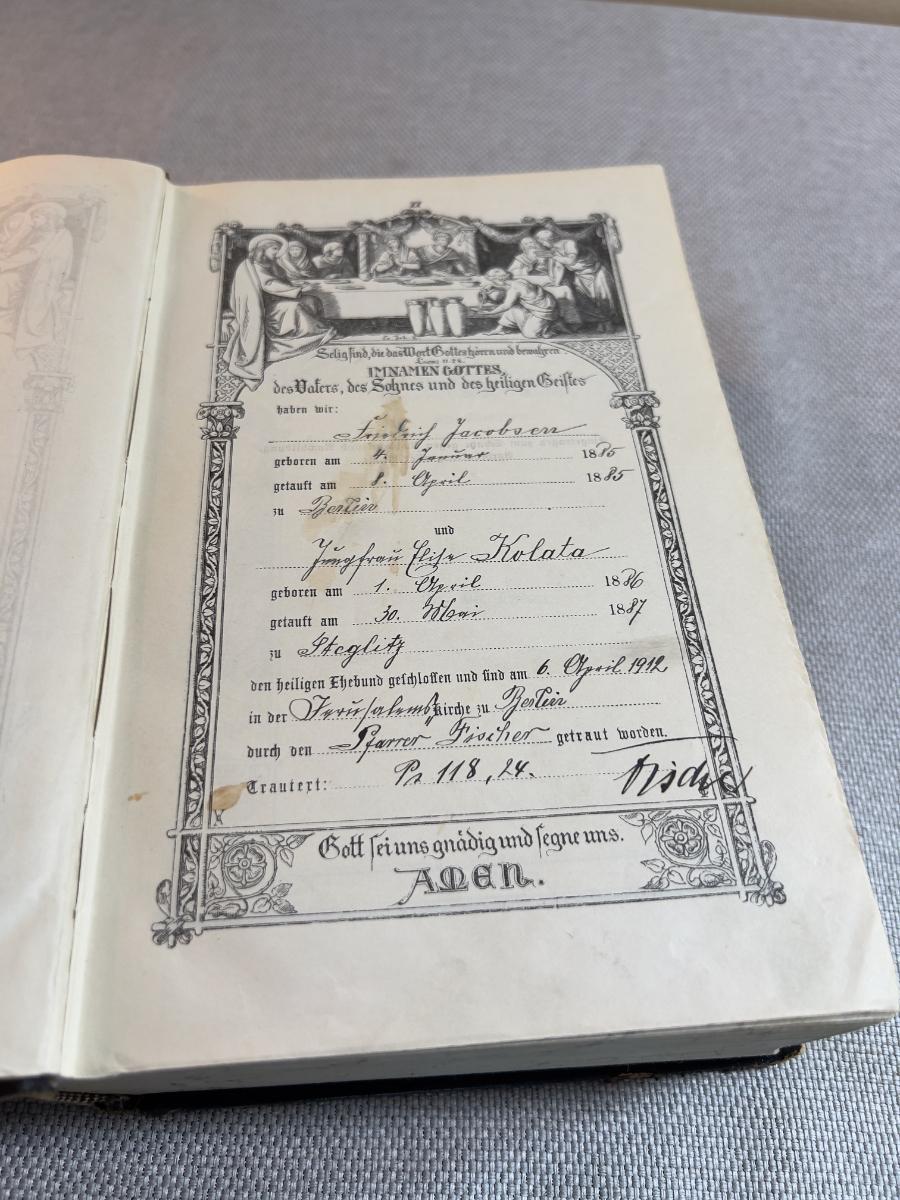 II
Selig sind, die das Wort Gottes hören und bewahren.
Lucas 11. 28.
IM NAMEN GOTTES,
des Vaters, des Sohnes und des heiligen Geistes
haben wir:
Friedrich Jacobsen
geboren am 4. Januar 1885
getauft am 8. April 1885
zu Berlin
und
Jungfrau Elise Kolata
geboren am 1. April 1886
getauft am 30. Mai 1887
zu Steglitz
den heiligen Ehebund geschlossen und sind am 6. April 1912
in der Jerusalems Kirche zu Berlin
durch den Pfarrer Fischer getraut worden.
Trautext: Ps 118, 24. Fischer
Gott sei uns gnädig und segne uns.
AMEN.